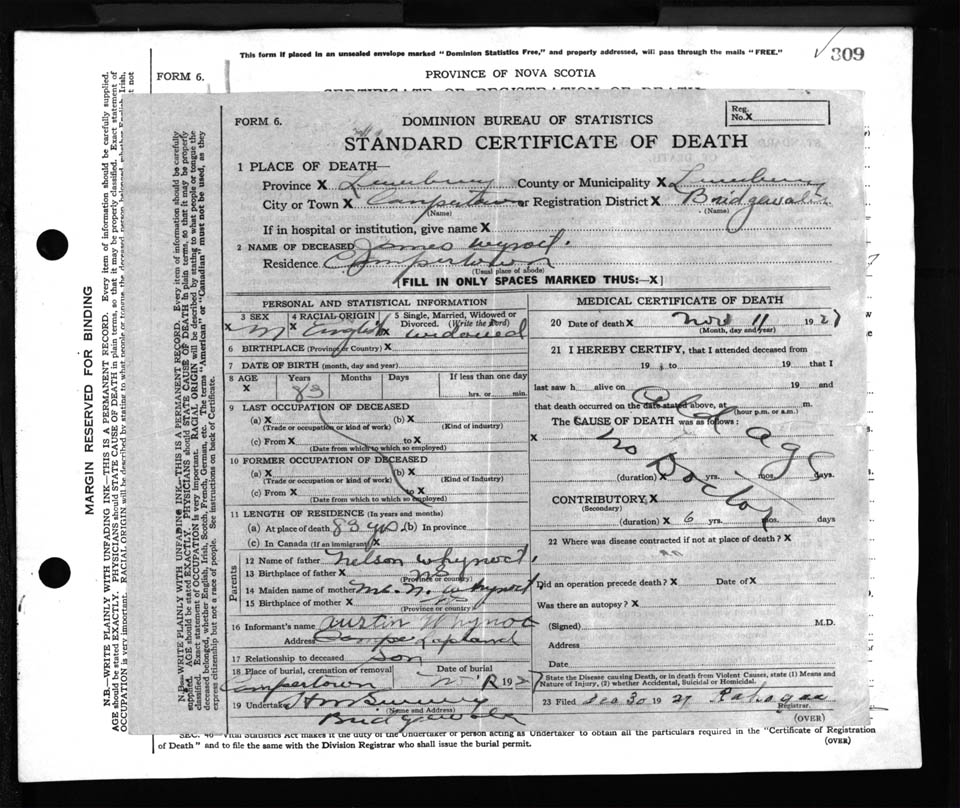 This form if placed in an unsealed envelope marked "Dominion Statistics Free," and properly addressed, will pass through the mails "FREE."
309
FORM 6.
PROVINCE OF NOVA SCOTIA
CERTIFICATE OF REGISTRATION OF DEATH
MARGIN RESERVED FOR BINDING
N.B.—WRITE PLAINLY WITH UNFADING INK—THIS IS A PERMANENT RECORD. Every item of information should be carefully supplied.
AGE should be stated EXACTLY. PHYSICIANS should STATE CAUSE OF DEATH in plain terms, so that it may be properly classified. Exact statement of
OCCUPATION is very important. RACIAL ORIGIN will be described by stating to what people or tongue the
N.B.—WRITE PLAINLY WITH UNFADING INK—THIS IS A PERMANENT RECORD. Every item of information should be carefully
supplied. AGE should be stated EXACTLY. PHYSICIANS should STATE CAUSE OF DEATH in plain terms, so that it may be properly
classified. Exact statement of OCCUPATION is very important. RACIAL ORIGIN will be described by stating to what people or tongue the
deceased belonged, whether English, Irish, Scotch, French, German, etc. The terms "American" or "Canadian" must not be used, as they
express citizenship but not a race of people. See instructions on back of Certificate.
FORM 6.
DOMINION BUREAU OF STATISTICS
Reg. No. X
STANDARD CERTIFICATE OF DEATH
1 PLACE OF DEATH—
Province X Lunenburg County or Municipality X Lunenburg
City or Town X Campertown or Registration District X Bridgewater
(Name) (Name)
If in hospital or institution, give name X
2 NAME OF DECEASED James Whynot.
Residence Campertown
(Usual place of abode)
[FILL IN ONLY SPACES MARKED THUS:—X]
PERSONAL AND STATISTICAL INFORMATION
3 SEX 4 RACIAL ORIGIN 5 Single, Married, Widowed or Divorced. (Write the word)
X M X English X widowed
6 BIRTHPLACE (Province or Country) X
7 DATE OF BIRTH (month, day and year)
8 AGE X Years Months Days If less than one day
83 hrs. or min.
9 LAST OCCUPATION OF DECEASED
(a) X (b) X
(Trade or occupation or kind of work) (Kind of industry)
(c) From X to X
(Date from which to which so employed)
10 FORMER OCCUPATION OF DECEASED
(a) X (b) X
(Trade or occupation or kind of work) (Kind of industry)
(c) From X to X
(Date from which to which so employed)
11 LENGTH OF RESIDENCE (In years and months)
(a) At place of death 83 yrs. (b) In province
(c) In Canada (If an immigrant) X
Parents
12 Name of father Nelson Whynoct.
13 Birthplace of father X NS
(Province or country)
14 Maiden name of mother Mrs. N. Whynot
15 Birthplace of mother X
(Province or country)
16 Informant's name Austin Whynot
Address Campe Lapland
17 Relationship to deceased Son
18 Place of burial, cremation or removal Date of burial
Campertown 192
19 Undertaker
(Name and Address)
Bridgewater
MEDICAL CERTIFICATE OF DEATH
20 Date of death X Nov 11 1927
(Month, day and year)
21 I HEREBY CERTIFY, that I attended deceased from
19 to 19 that I
last saw h alive on 19 and
that death occurred on the date stated above, at m.
(hour p.m. or a.m.)
The CAUSE OF DEATH was as follows:
X Old age
No Doctor
(duration) X yrs. mos. days.
CONTRIBUTORY X
(Secondary)
(duration) X 6 yrs. mos. days
22 Where was disease contracted if not at place of death? X
Did an operation precede death? X Date of X
Was there an autopsy? X
(Signed) M.D.
Address
Date
State the Disease causing Death, or in Death from Violent Causes, state (1) Means and
Nature of Injury, (2) whether Accidental, Suicidal or Homicidal.
23 Filed Dec 30 1927
Registrar.
(OVER)
SEC. 46—Vital Statistics Act makes it the duty of the Undertaker or person acting as Undertaker to obtain all the particulars required in the "Certificate of Registration
of Death" and to file the same with the Division Registrar who shall issue the burial permit. (OVER)